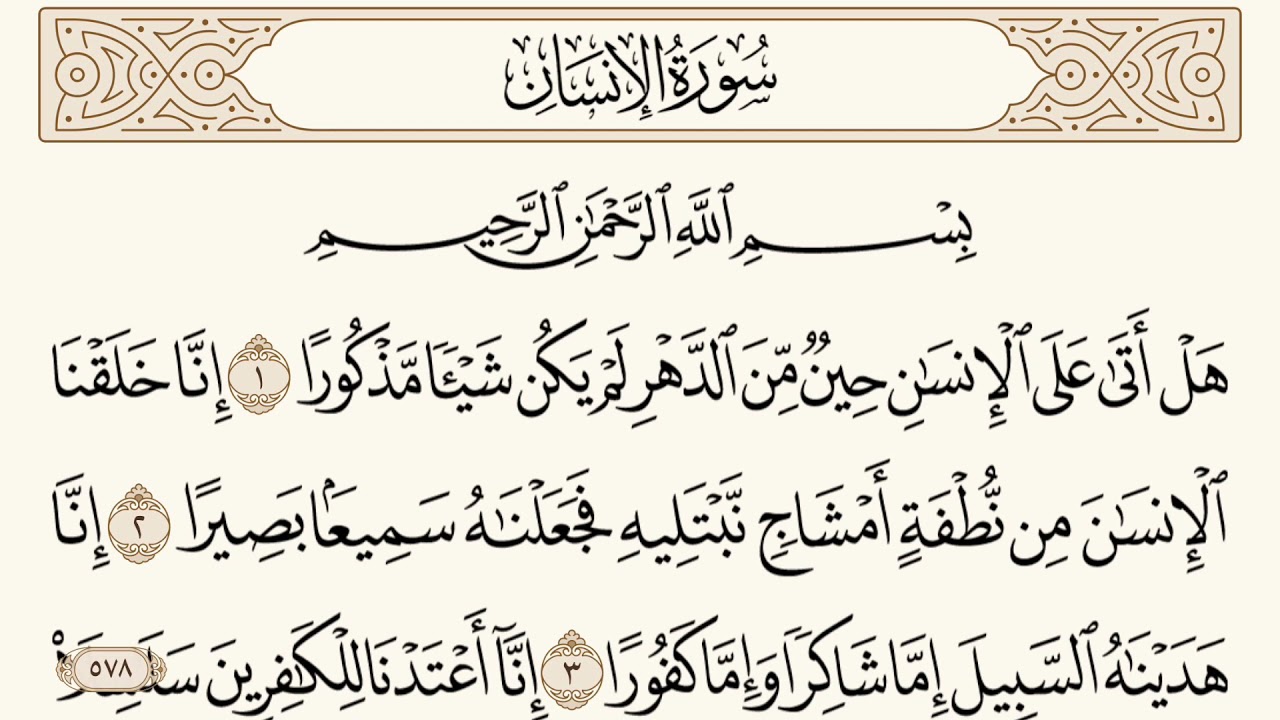 سُورَةُ الإِنسَانِ
بِسْمِ ٱللَّهِ ٱلرَّحْمَٰنِ ٱلرَّحِيمِ
هَلْ أَتَىٰ عَلَى ٱلْإِنسَٰنِ حِينٌ مِّنَ ٱلدَّهْرِ لَمْ يَكُن شَيْـًٔا مَّذْكُورًا ١ إِنَّا خَلَقْنَا
ٱلْإِنسَٰنَ مِن نُّطْفَةٍ أَمْشَاجٍ نَّبْتَلِيهِ فَجَعَلْنَٰهُ سَمِيعًۢا بَصِيرًا ٢ إِنَّا
هَدَيْنَٰهُ ٱلسَّبِيلَ إِمَّا شَاكِرًا وَإِمَّا كَفُورًا ٣ إِنَّآ أَعْتَدْنَا لِلْكَٰفِرِينَ
٥٧٨